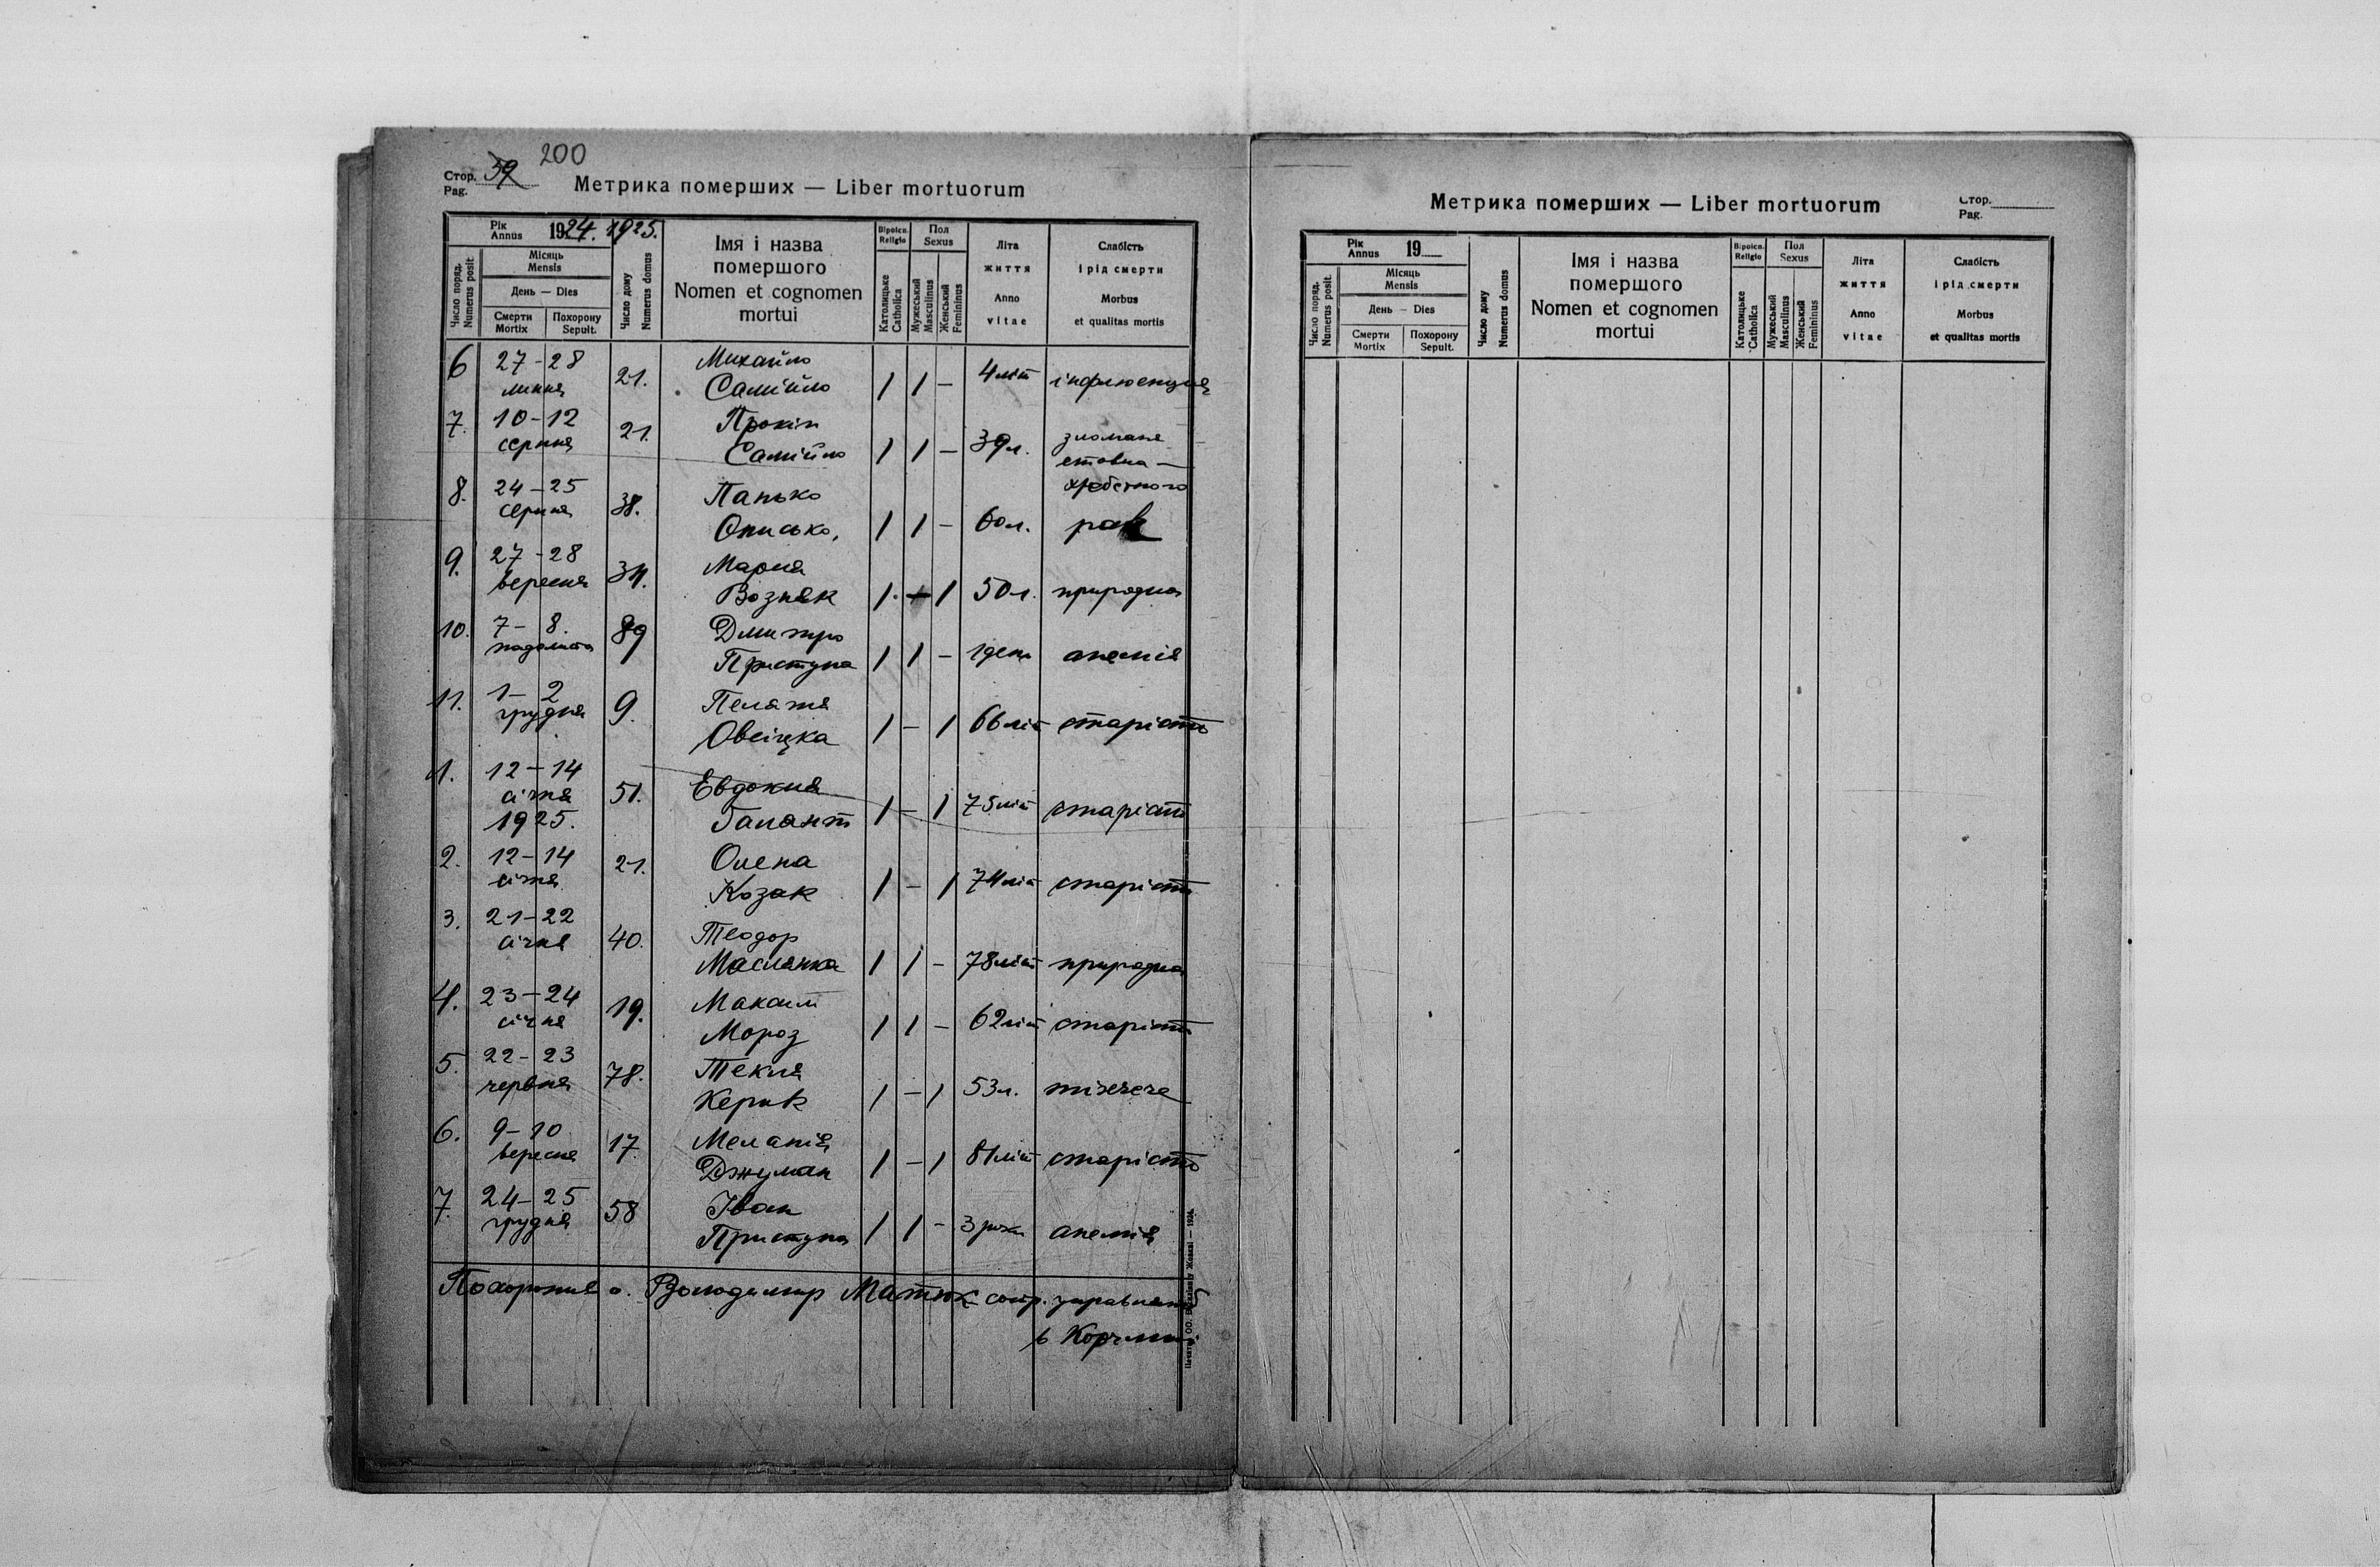 200
Стор. 39
Pag.
Метрика померших — Liber mortuorum
Рік
Annus 1924. 1925.
Число поряд.
Numerus posit.
Місяць
Mensis
День — Dies
Смерти
Mortix
Похорону
Sepult.
Число дому
Numerus domus
Імя і назва
помершого
Nomen et cognomen
mortui
Віроісп.
Religio
Католицьке
Catholica
Пол
Sexus
Мужеський
Masculinus
Женський
Femininus
Літа
життя
Anno
vitae
Слабість
і рід смерти
Morbus
et qualitas mortis
6 27-28 Михайло
липня 21. Самійло 1 1 – 4 літ інфлюенция
7. 10-12 Прокіп
серпня 21. Самійло 1 1 – 39 л. зломаня
стовпа
хребетного
8. 24-25 Панько
серпня 38. Онисько, 1 1 – 60 л. рак
9. 27-28 Мария
вересня 34. Возняк 1. – 1 50 л. природна
10. 7-8. Дмитро
падолиста 89 Приступа 1 1 – 1 день анемія
11. 1-2 Пелагия
грудня 9. Овсіцка 1 – 1 66 літ старість
1. 12-14 Евдокия
січня 51. 1 – 1 75 літ старість
1925.
2. 12-14 Олена
січня 21. Козак 1 – 1 74 літ старість
3. 21-22 Теодор
січня 40. Маслянка 1 1 – 78 літ природна
4. 23-24 Максим
січня 19. Мороз 1 1 – 62 літ старість
5. 22-23 Текля
червня 78. Керик 1 – 1 53 л.
6. 9-10 Меланія
вересня 17. Джуман 1 – 1 81 літ старість
7. 24-25 Іван
грудня 58 Приступа 1 1 – 3 роки анемія
о. Володимир Матюк сотр.
в Корчмині
Метрика померших — Liber mortuorum
Стор.
Pag.
Рік
Annus 19
Число поряд.
Numerus posit.
Місяць
Mensis
День — Dies
Смерти
Mortix
Похорону
Sepult.
Число дому
Numerus domus
Імя і назва
помершого
Nomen et cognomen
mortui
Віроісп.
Religio
Католицьке
Catholica
Пол
Sexus
Мужеський
Masculinus
Женський
Femininus
Літа
життя
Anno
vitae
Слабість
і рід смерти
Morbus
et qualitas mortis